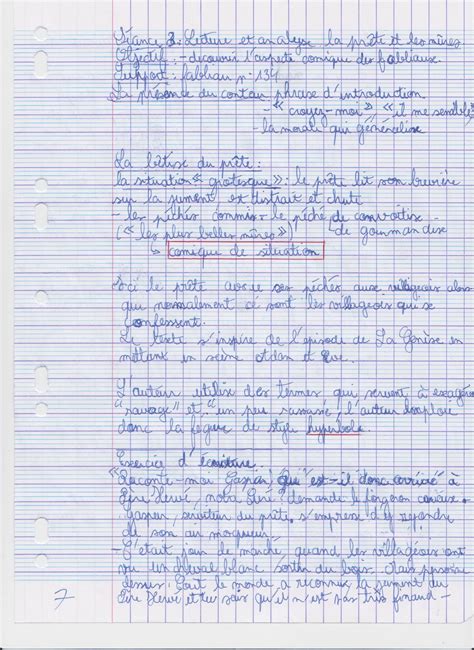 Séance 3: Lecture et analyse la prête et les mûres
Objectif: - découvrir l'aspect comique des fabliaux
Support: fabliau n° 134
La présence du conteur phrase d'introduction
- "croyez-moi" "il me semble"
- la morale qui généralise
La bêtise du prête:
la situation "grotesque": le prête lit son brevière
sur la jument est distrait et chute
- les péchés commis: le péché de convoitise
("les plus belles mûres") de gourmandise
↳ comique de situation
Ici le prête avoue ses péchés aux villageois alors
que normalement ce sont les villageois qui se
confessent.
Le texte s'inspire de l'épisode de La Genèse en
mettant en scène Adam et Eve.
L'auteur utilise des termes qui servent à exagérer
"sauvage" et "un peu rassasié" l'auteur
donc la figure de style hyperbole.
Exercice d'écriture.
"Raconte-moi Gaspar, que est-il donc arrivé à
Père Hervé, notre Curé" demande le forgeron curieux.
Gaspar, serviteur du prête s'empresse d'y repondre
de son air moqueur:
- C'était jour de marché, quand les villageois ont
vu un cheval blanc sortir du bois. Mais personne
dessus. Tout le monde a reconnu la jument du
Père Hervé et tu sais qu'il n'est pas très finaud -
7